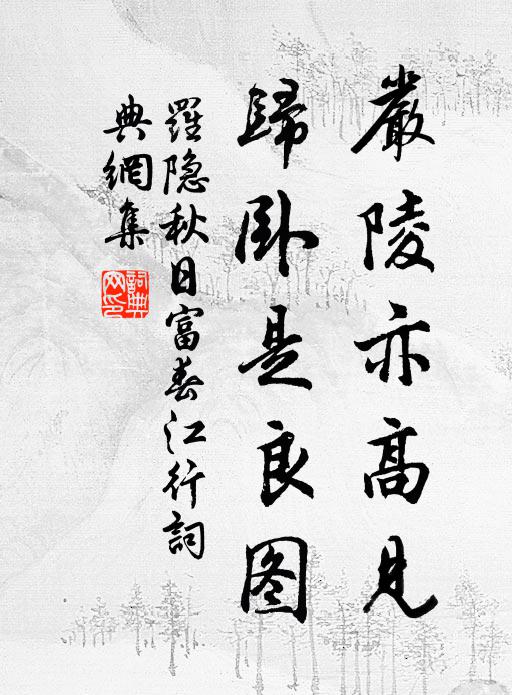 嚴陵亦高見
歸卧是良图
羅隐秋日富春江行詞
典網集
詞典网印